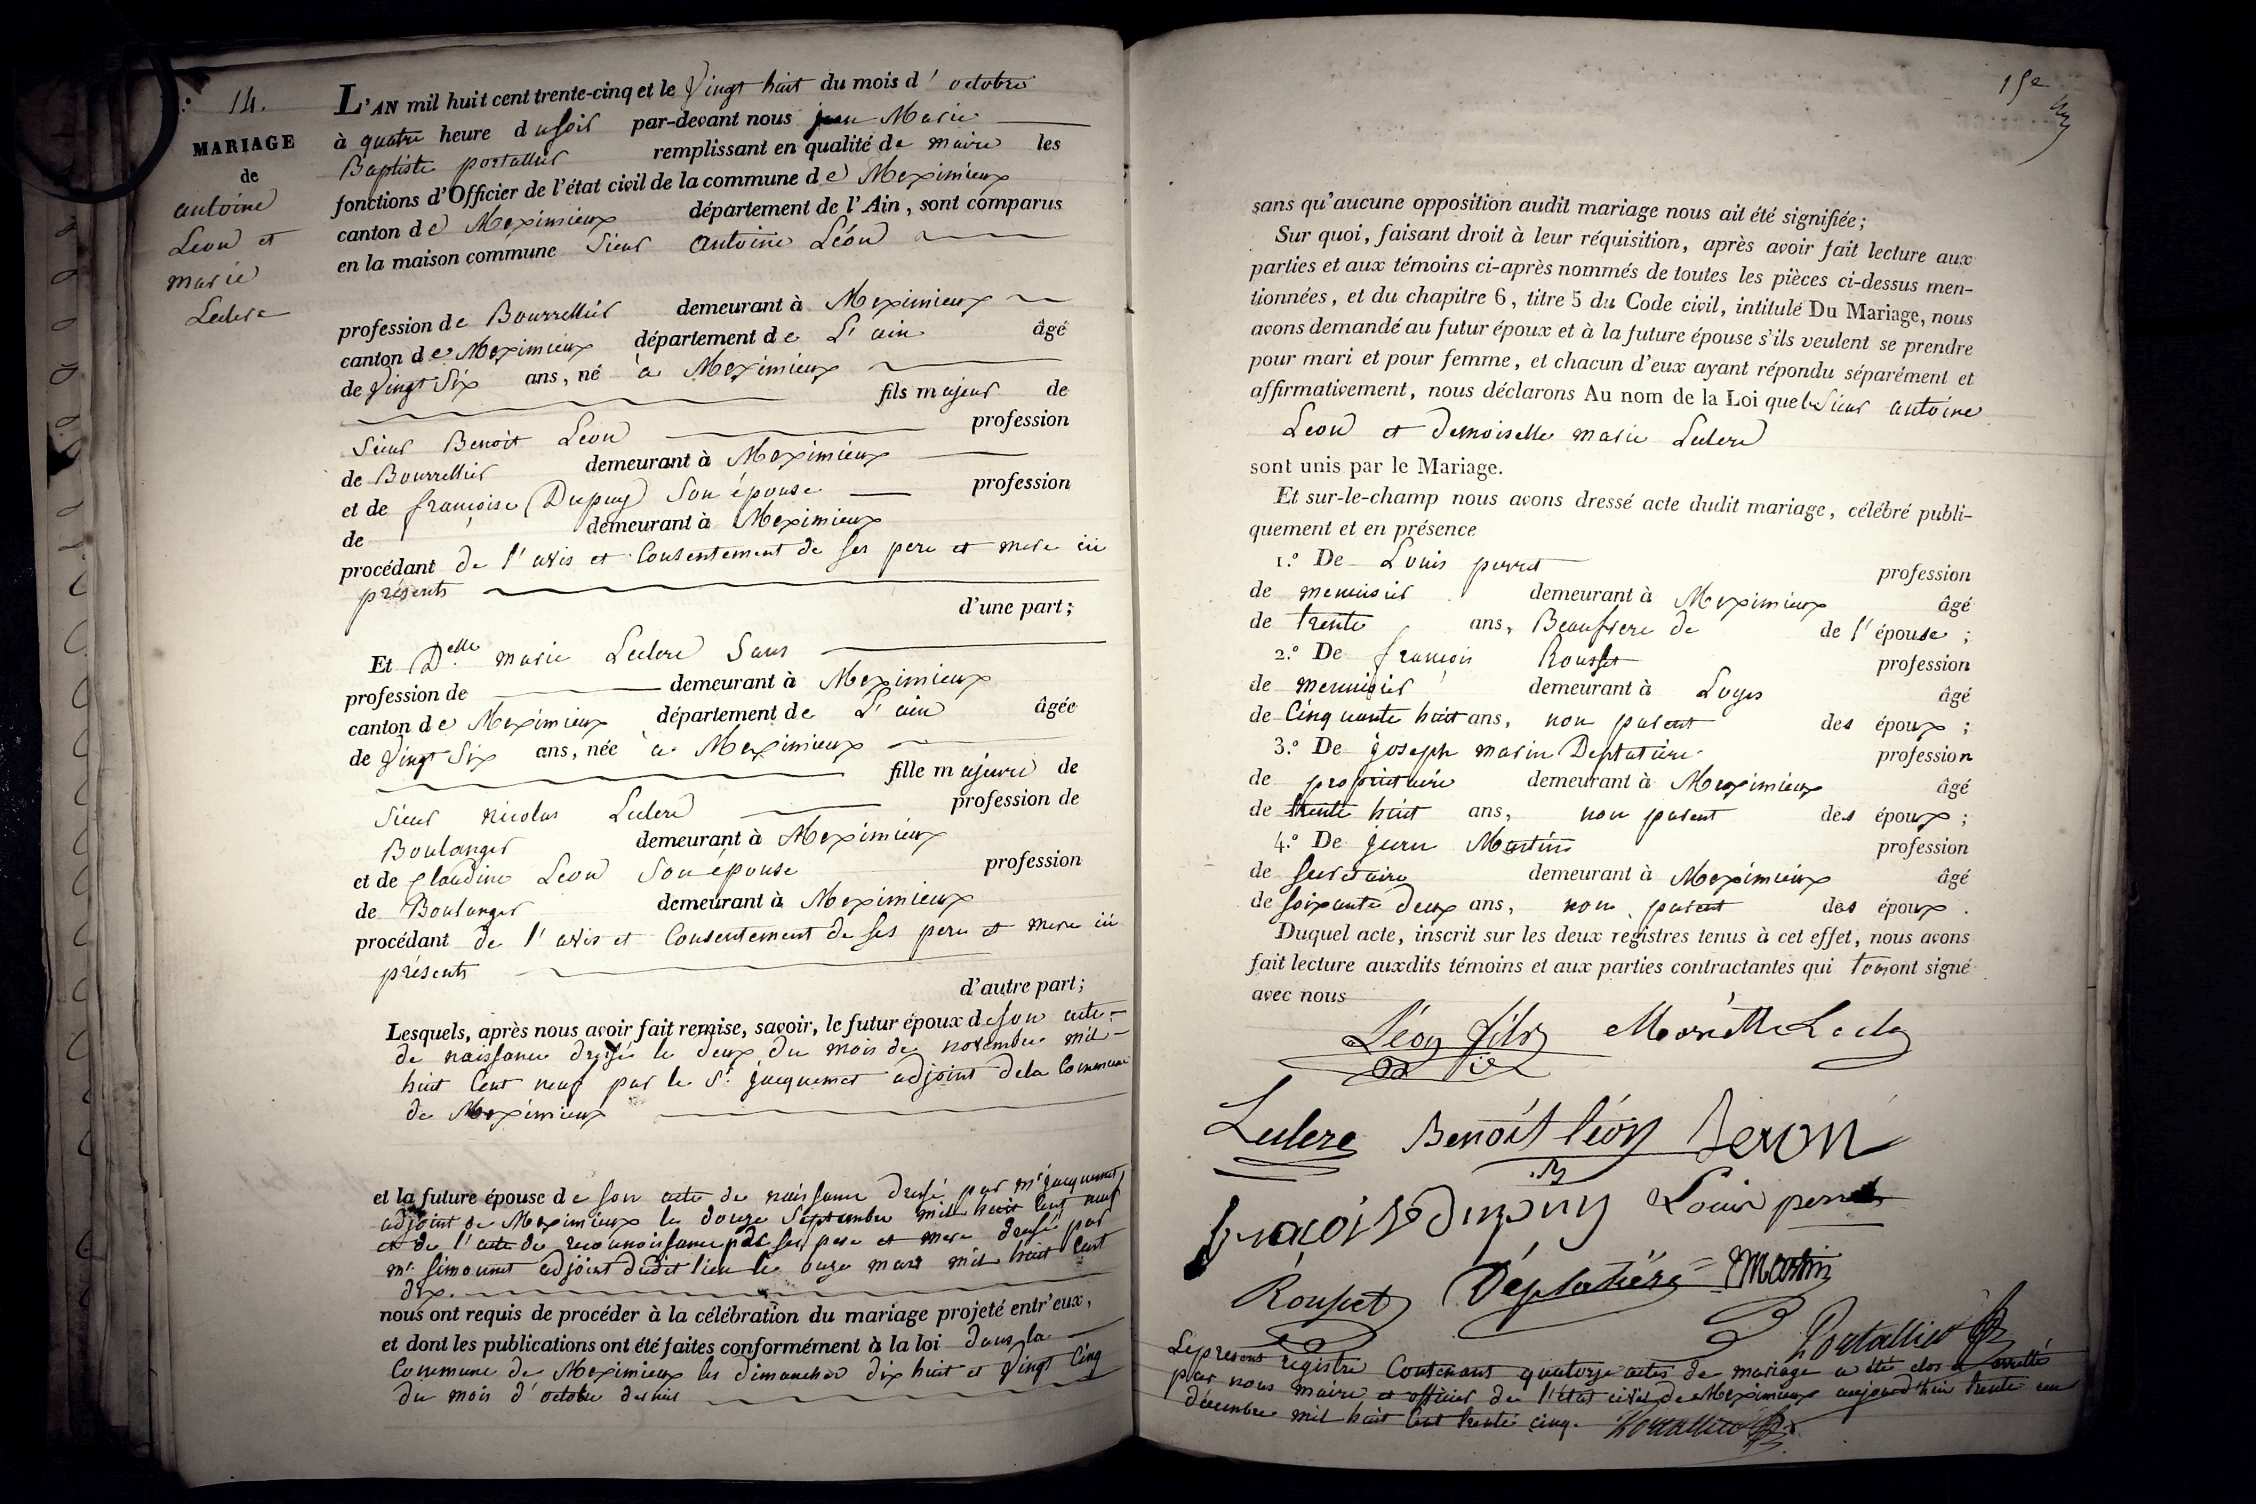 14.
MARIAGE
de
antoine
Leon et
marie
Leclerc
L'AN mil huit cent trente-cinq et le Vingt huit du mois d' octobre
à quatre heure du soir par-devant nous jean Marie
Baptiste portallier remplissant en qualité de maire les
fonctions d'Officier de l'état civil de la commune de Meximieux
canton de Meximieux département de l'Ain, sont comparus
en la maison commune Sieur Antoine Léon
profession de Bourrellier demeurant à Meximieux
canton de Meximieux département de L'ain âgé
de Vingt Six ans, né à Meximieux
fils majeur de
Sieur Benoit Leon profession
de Bourrellier demeurant à Meximieux
et de françoise Dupuy Son épouse profession
de demeurant à Meximieux
procédant de l'avis et Consentement de ses pere et mere ici
présents
d'une part;
Et Delle marie Leclerc Sans
profession de demeurant à Meximieux
canton de Meximieux département de L'ain âgée
de Vingt Six ans, née à Meximieux
fille majeure de
Sieur nicolas Leclerc profession de
Boulanger demeurant à Meximieux
et de Claudine Leon Son épouse profession
de Boulanger demeurant à Meximieux
procédant de l'avis et Consentement de ses pere et mere ici
présents
d'autre part;
Lesquels, après nous avoir fait remise, savoir, le futur époux de son acte
de naissance dressé le deux du mois de novembre mil
huit Cent neuf par le Sr. jacquemet adjoint de la Commune
de Meximieux
et la future épouse de son acte de naissance dressé par mr jacquemet
adjoint de Meximieux le douze Septembre mil huit Cent neuf
et de l'acte de reconnoissance par ses pere et mere dressé par
mr. Simonnet adjoint dudit lieu le onze mars mil huit Cent
dix.
nous ont requis de procéder à la célébration du mariage projeté entr'eux,
et dont les publications ont été faites conformément à la loi dans la
Commune de Meximieux les dimanches dix huit et Vingt Cinq
du mois d'octobre dernier
15e
sans qu'aucune opposition audit mariage nous ait été signifiée;
Sur quoi, faisant droit à leur réquisition, après avoir fait lecture aux
parties et aux témoins ci-après nommés de toutes les pièces ci-dessus men-
tionnées, et du chapitre 6, titre 5 du Code civil, intitulé Du Mariage, nous
avons demandé au futur époux et à la future épouse s'ils veulent se prendre
pour mari et pour femme, et chacun d'eux ayant répondu séparément et
affirmativement, nous déclarons Au nom de la Loi que le Sieur antoine
Leon et demoiselle marie Leclerc
sont unis par le Mariage.
Et sur-le-champ nous avons dressé acte dudit mariage, célébré publi-
quement et en présence
1.º De Louis perret profession
de menuisier demeurant à Meximieux âgé
de trente ans, Beaufrere de de l'épouse;
2.º De françois Rousset profession
de menuisier demeurant à Loyes âgé
de Cinquante huit ans, non parent des époux;
3.º De joseph marin Deplatière profession
de propriétaire demeurant à Meximieux âgé
de trente huit ans, non parent des époux;
4.º De jean Martin profession
de Secretaire demeurant à Meximieux âgé
de soixante deux ans, non parent des époux.
Duquel acte, inscrit sur les deux registres tenus à cet effet, nous avons
fait lecture auxdits témoins et aux parties contractantes qui tous ont signé
avec nous
Léon fils Mariette
Leclerc Benoît léon
Dupuy Louis perret
Rousset Déplatière Martin
Portallier
Le present registre Contenant quatorze actes de mariage a été clos et arretté
par nous maire et officier de l'état civil de Meximieux aujourd'hui trente un
décembre mil huit Cent trente cinq. Portallier